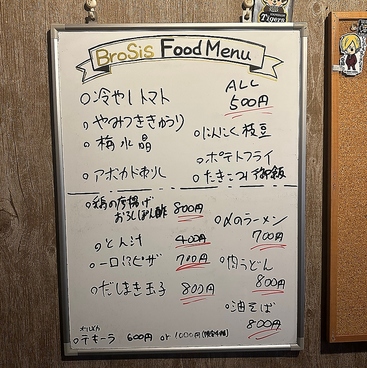 Tigers
BroSis Food Menu
ALL
500円
○冷やしトマト
○やみつききゅうり
○梅水晶
○アボカドわさび
○にんにく枝豆
○ポテトフライ
○たきこみ御飯
○鶏の唐揚げ
おろしぽん酢 800円
○とん汁 400円
○一口ピザ 700円
○だしまき玉子 800円
○〆のラーメン
700円
○肉うどん
800円
○油そば
800円
○テキーラ 600円 or 1000円